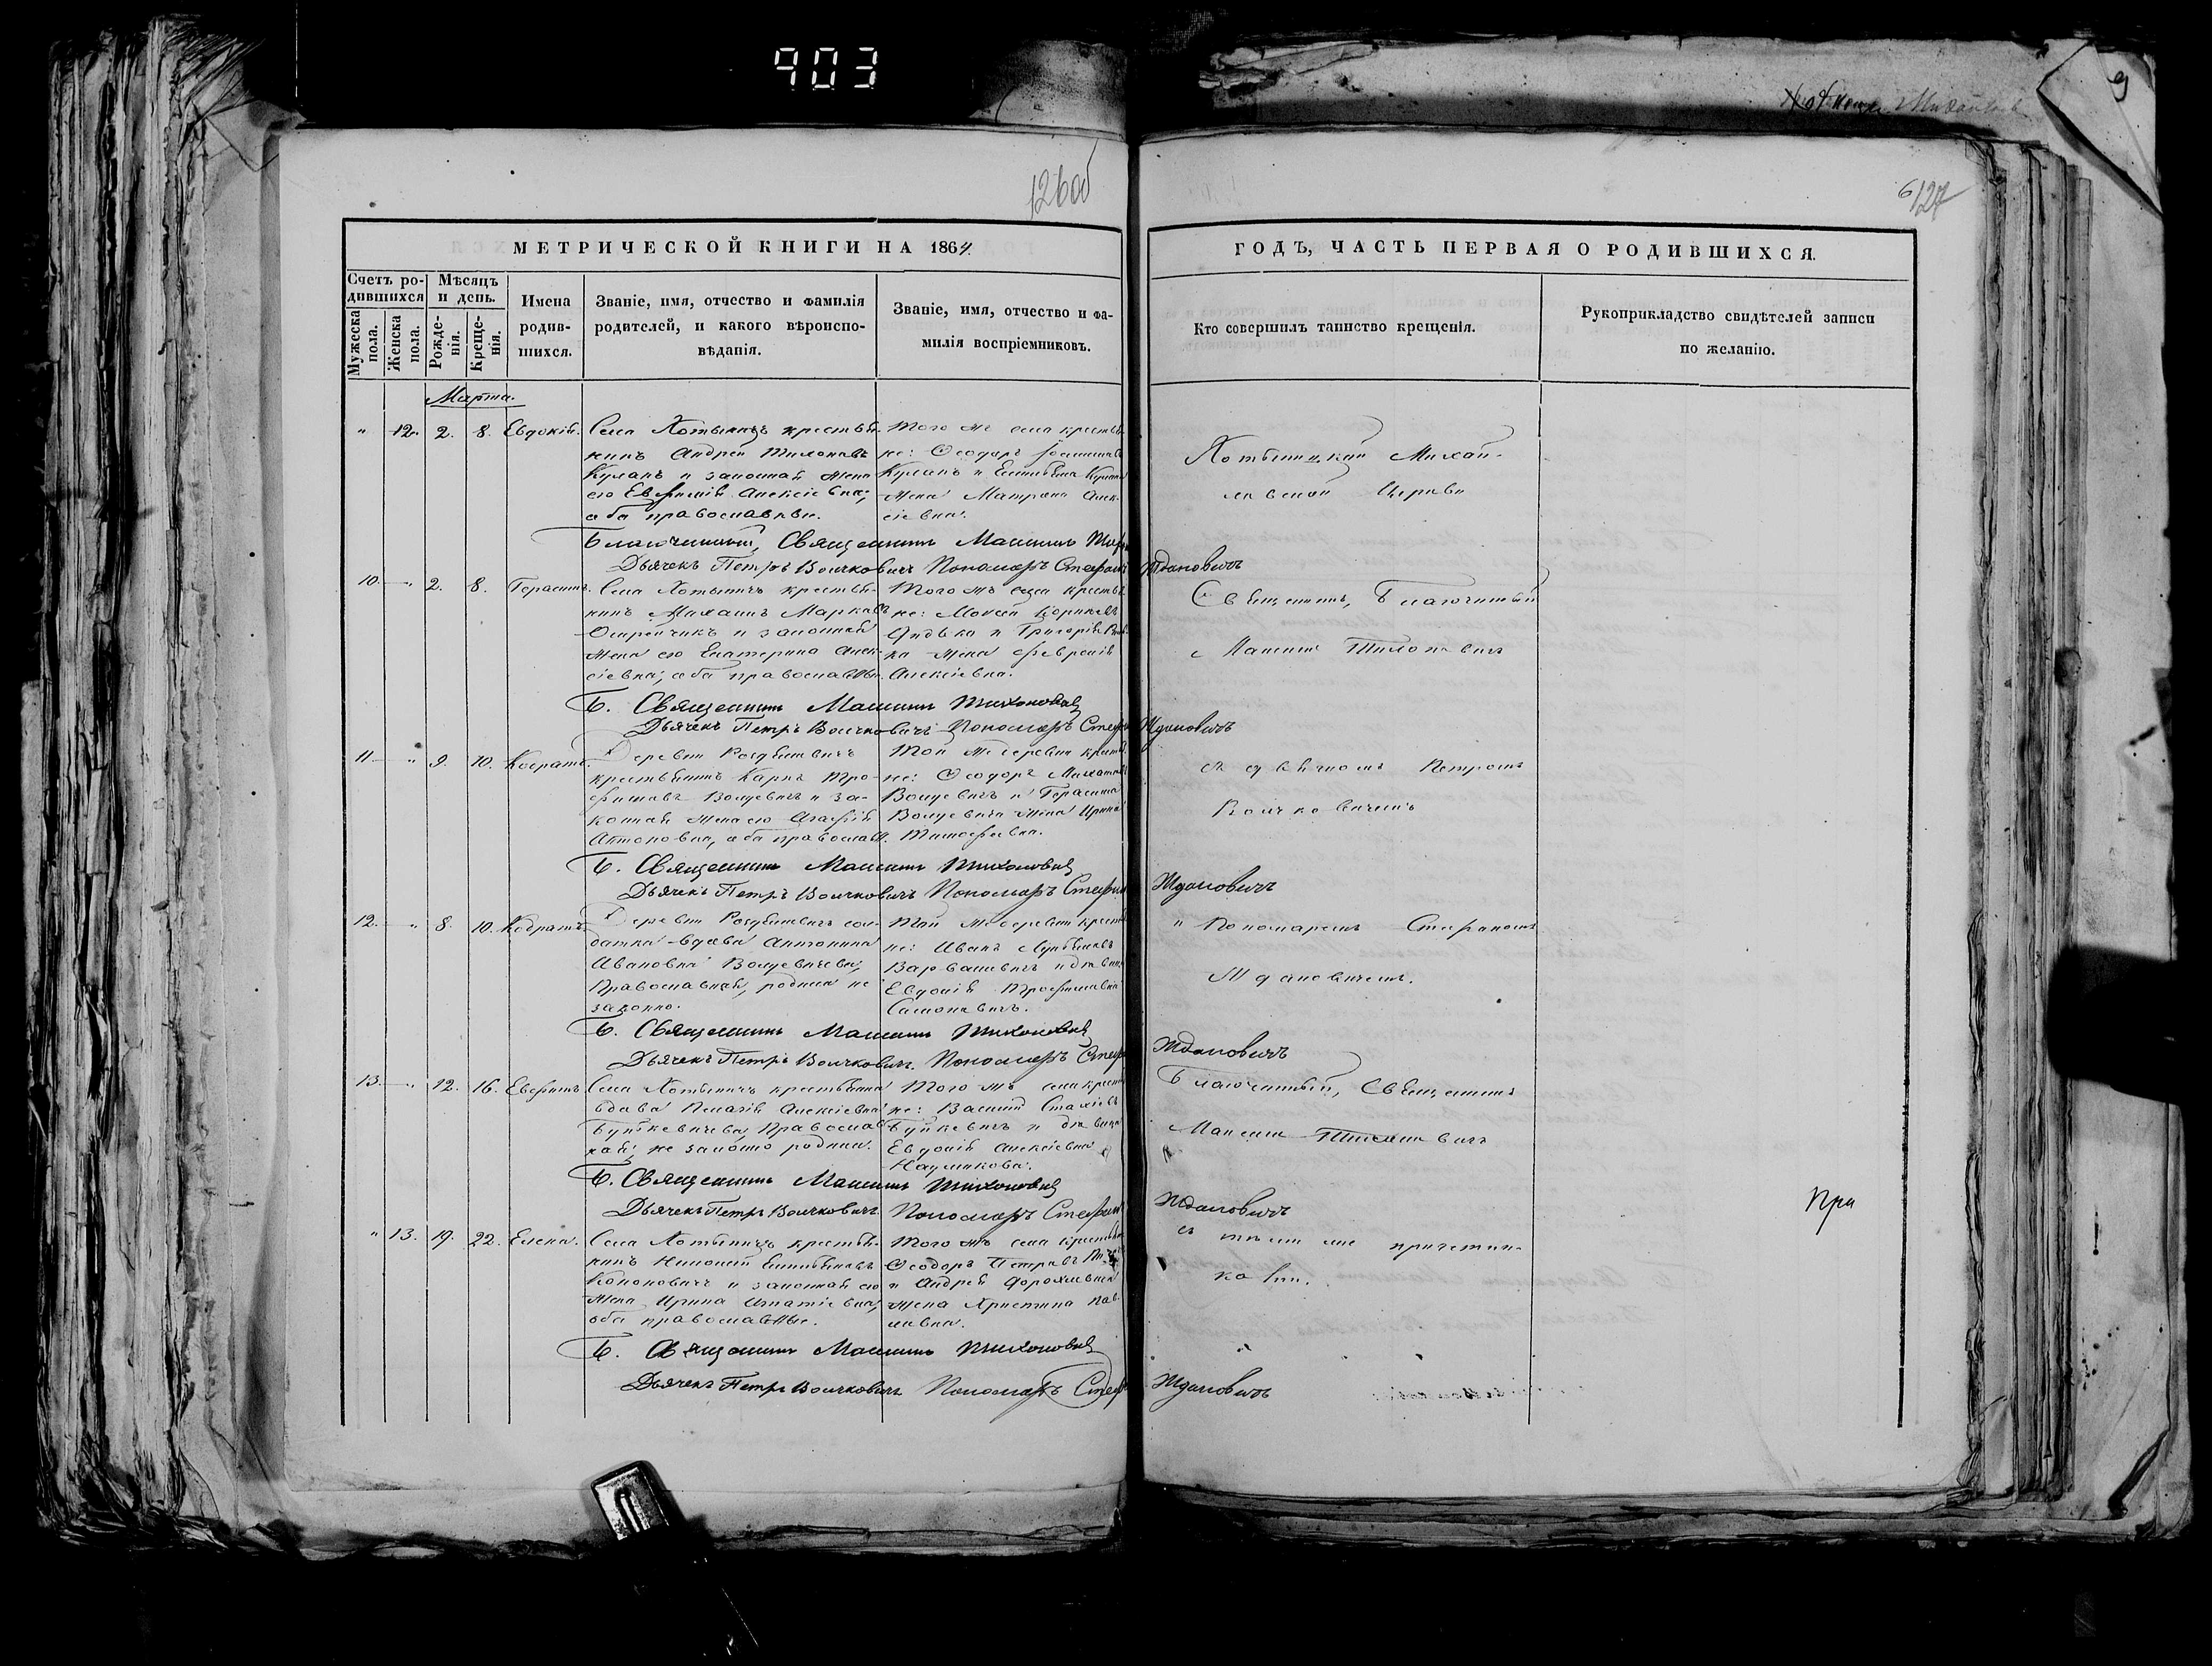 903
9
126 об
6/127
МЕТРИЧЕСКОЙ КНИГИ НА 1864
ГОДЪ, ЧАСТЬ ПЕРВАЯ О РОДИВШИХСЯ.
Счетъ родившихся
Мужеска пола.
Женска пола.
Мѣсяцъ и день.
Рожденія.
Крещенія.
Имена родившихся.
Званіе, имя, отчество и фамилія
родителей, и какого вѣроиспо-
вѣданія.
Званіе, имя, отчество и фа-
милія воспріемниковъ.
Кто совершилъ таинство крещенія.
Рукоприкладство свидѣтелей записи
по желанію.
Марта.
" 12. 2. 8. Евдокія.
Села Хотыничъ крестья-
нинъ Андрей Тихоновъ
Куланъ и законная жена
его Евфимія Алексіевна,
оба православны.
Того же села крестья
не: Ѳеодоръ
Куланъ и
жена Матрона Алек-
сіевна.
Хотыницкой Михай-
ловской Церкви
Благочинный, Священникъ Максимъ
Дьячекъ Петръ Волчковичъ Пономарь Стефанъ Ждановичъ
10. " 2. 8. Герасимъ.
Села Хотыничъ крестья-
нинъ Михаилъ Марковъ
и законная
жена его Екатерина Алек-
сіевна, оба православны.
Того жъ села крестья
не: Моисей
и Григорія
жена Февронія
Алексіевна.
Священникъ, Благочинный
Максимъ Тихоновичъ
Б. Священникъ Максимъ Тихоновичъ
Дьячекъ Петръ Волчковичъ Пономарь Стефанъ Ждановичъ
11. " 9. 10. Кодратъ.
Деревни
крестьянинъ Карпъ Тро-
фимовъ Волуевичъ и за-
конная жена его Агафія
Антоновна, оба православн.
Той же деревни крестья
не: Ѳеодоръ Михайловъ
Волуевичъ и Герасима
Волуевича жена Ирина
Тимофеевна.
съ дьячкомъ Петромъ
Волчковичемъ
Б. Священникъ Максимъ Тихоновичъ
Дьячекъ Петръ Волчковичъ Пономарь Стефанъ Ждановичъ
12. " 8. 10. Кодратъ.
Деревни сол-
датка вдова Антонина
Ивановна Волуевичева,
Православная, родила не
законно.
Той же деревни крестья
не: Иванъ
Варвашевичъ и дѣвица
Евдокія Трофимовна
Самоновичъ.
" Пономаремъ Стефаномъ
Ждановичемъ.
Б. Священникъ Максимъ Тихоновичъ
Дьячекъ Петръ Волчковичъ. Пономарь Стефанъ Ждановичъ
13. " 12. 16. Евфимъ.
Села Хотыничъ крестьянка
вдова Пелагія Алексіевна
Буткевичева, Православ
ная, не законно родила.
Того жъ села крестья
не: Василій Стахіевъ
Буткевичъ и дѣвица
Евдокія Алексіевна
Наумикова.
Благочинный, Священникъ
Максимъ Тихоновичъ
Б. Священникъ Максимъ Тихоновичъ
Дьячекъ Петръ Волчковичъ Пономарь Стефанъ Ждановичъ
При
" 13. 19. 22. Елена.
Села Хотыничъ крестья-
нинъ
Кононовичъ и законная его
жена Ирина Игнатіевна,
оба православны.
Того жъ села крестьяне
Ѳеодоръ Петровъ
и Андрея
жена Христина Пав-
ловна.
съ тѣми же причетни-
ками.
Б. Священникъ Максимъ Тихоновичъ
Дьячекъ Петръ Волчковичъ Пономарь Стефанъ Ждановичъ